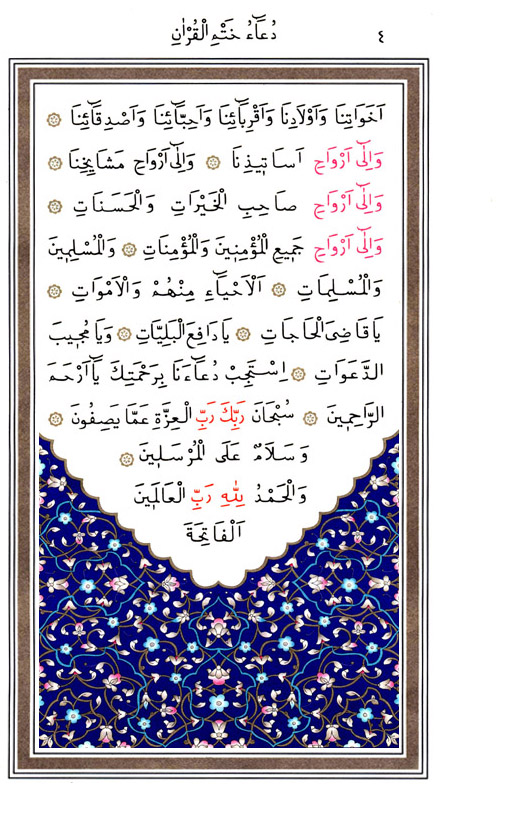 دُعَاۤءُ خَتْمِ الْقُرْاٰنِ ٤
اَخَوَاتِنَا وَاَوْلَادِنَا وَاَقْرِبَاۤئِنَا وَاَحِبَّاۤئِنَا وَاَصْدِقَاۤئِنَا
وَاِلٰٓى اَرْوَاحِ اَسَاتِيذِنَا وَاِلٰٓى اَرْوَاحِ مَشَايِخِنَا
وَاِلٰٓى اَرْوَاحِ صَاحِبِ الْخَيْرَاتِ وَالْحَسَنَاتِ
وَاِلٰٓى اَرْوَاحِ جَمِيعِ الْمُؤْمِنِينَ وَالْمُؤْمِنَاتِ وَالْمُسْلِمِينَ
وَالْمُسْلِمَاتِ اَلْاَحْيَاۤءِ مِنْهُمْ وَالْاَمْوَاتِ
يَا قَاضِىَ الْحَاجَاتِ يَا دَافِعَ الْبَلِيَّاتِ وَيَا مُجِيبَ
الدَّعَوَاتِ اِسْتَجِبْ دُعَاۤءَنَا بِرَحْمَتِكَ يَاۤ اَرْحَمَ
الرَّاحِمِينَ سُبْحَانَ رَبِّكَ رَبِّ الْعِزَّةِ عَمَّا يَصِفُونَ
وَسَلَامٌ عَلَى الْمُرْسَلِينَ
وَالْحَمْدُ لِلّٰهِ رَبِّ الْعَالَمِينَ
اَلْفَاتِحَةَ